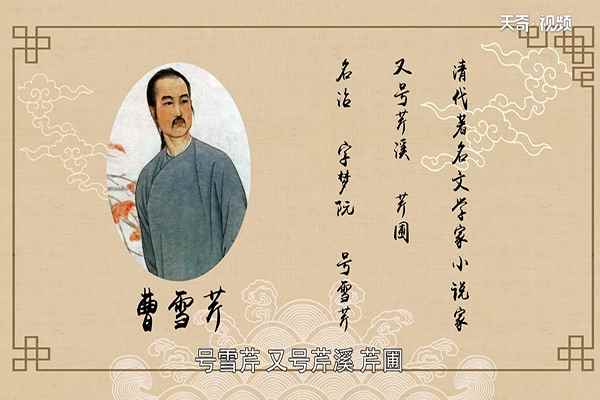 天奇·视频
清代著名文学家小说家
又号芹溪 芹圃
名沾 字梦阮 号雪芹
曹雪芹
号雪芹 又号芹溪 芹圃